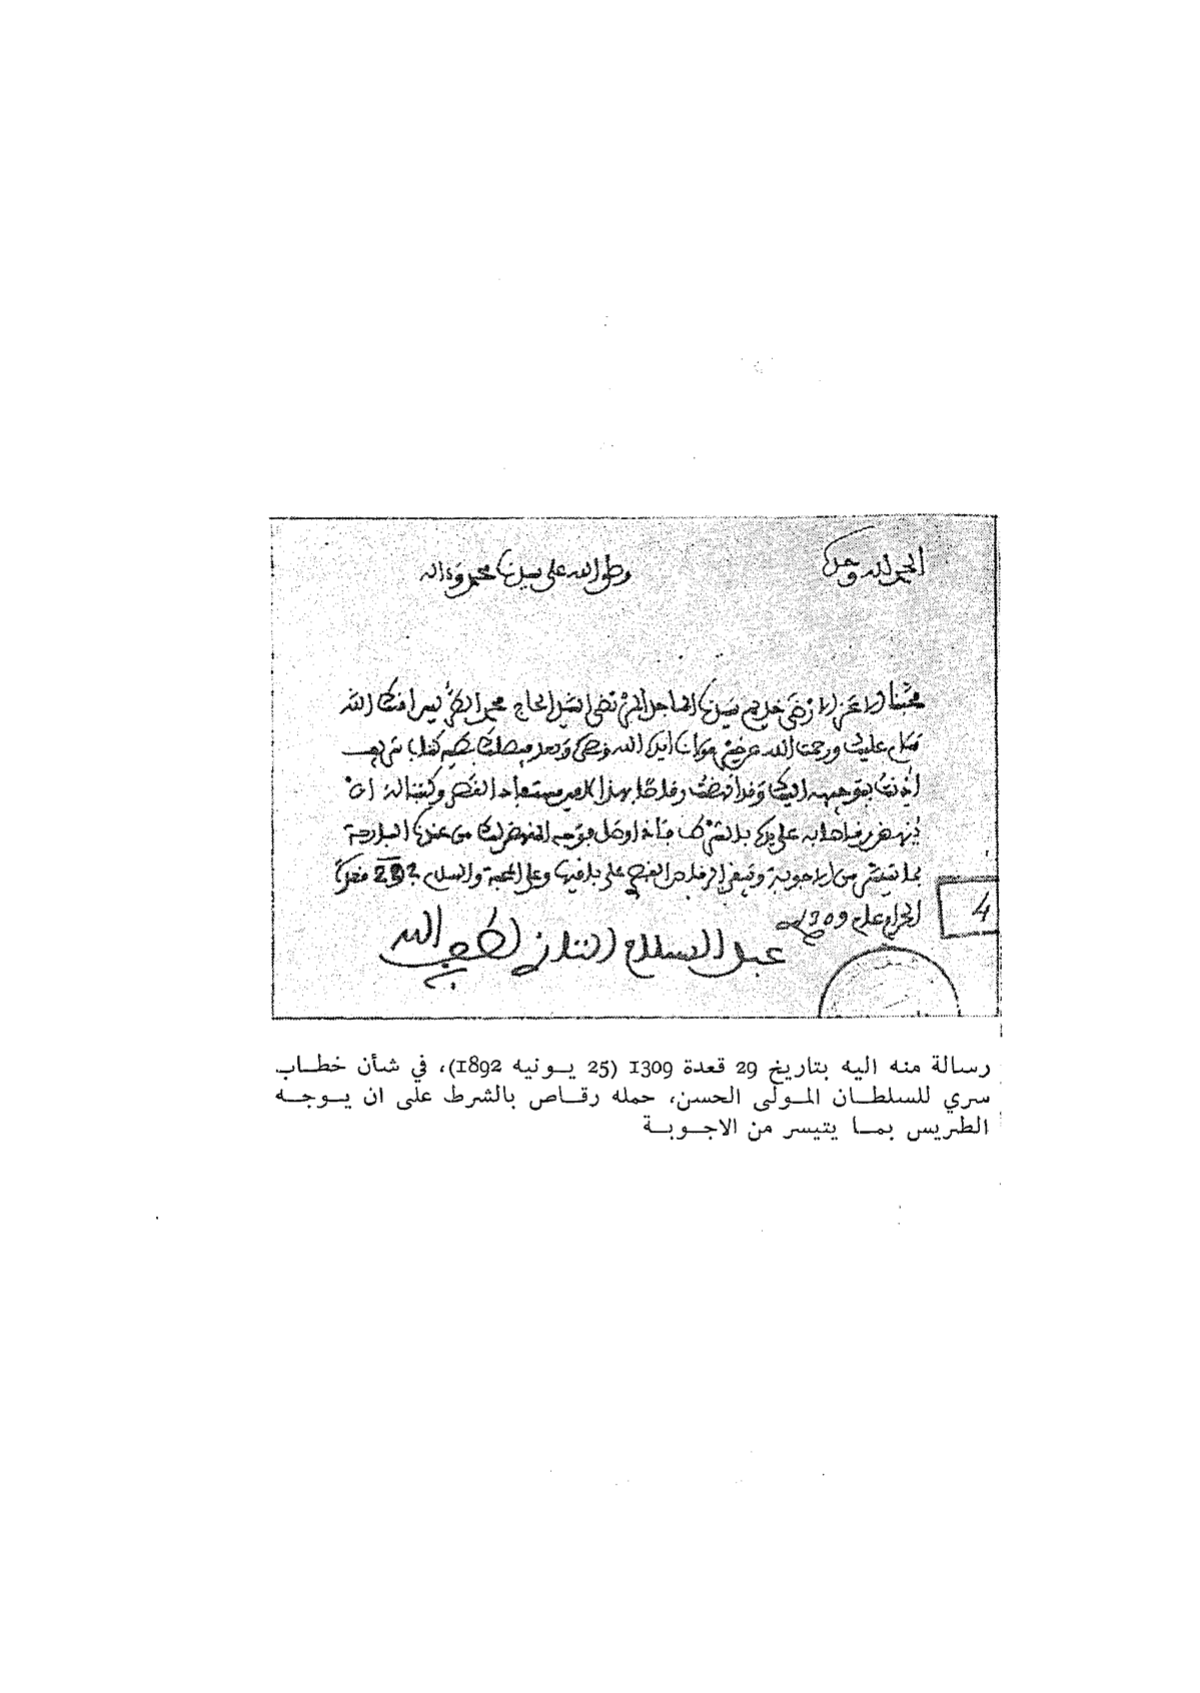 الحمد لله وحده
وصلى الله على سيدنا محمد وءاله
محبنا الاعز الارضى خديم سيدنا الماجد المرتضى السيد الحاج محمد الطريس امنك الله
سلام عليك ورحمت الله عن خير مولانا ايده الله وبعد فيصلك طيه كتاب شريف
اذنت بتوجيهه اليك وقد رقاصا بهذا القدر وكتبنا له ان
على يدك بالشرط فاذا وصل فوجه من عندك البارحة
بما تيسر من الاجوبة الرقاص على وعلى المحبة والسلام في 29 قعدة
الحرام عام 1309
عبد السلام التازي لطف الله به
4
رسالة منه اليه بتاريخ 29 قعدة 1309 (25 يونيه 1892)، في شأن خطاب
سري للسلطان المولى الحسن، حمله رقاص بالشرط على ان يوجه
الطريس بما يتيسر من الاجوبة